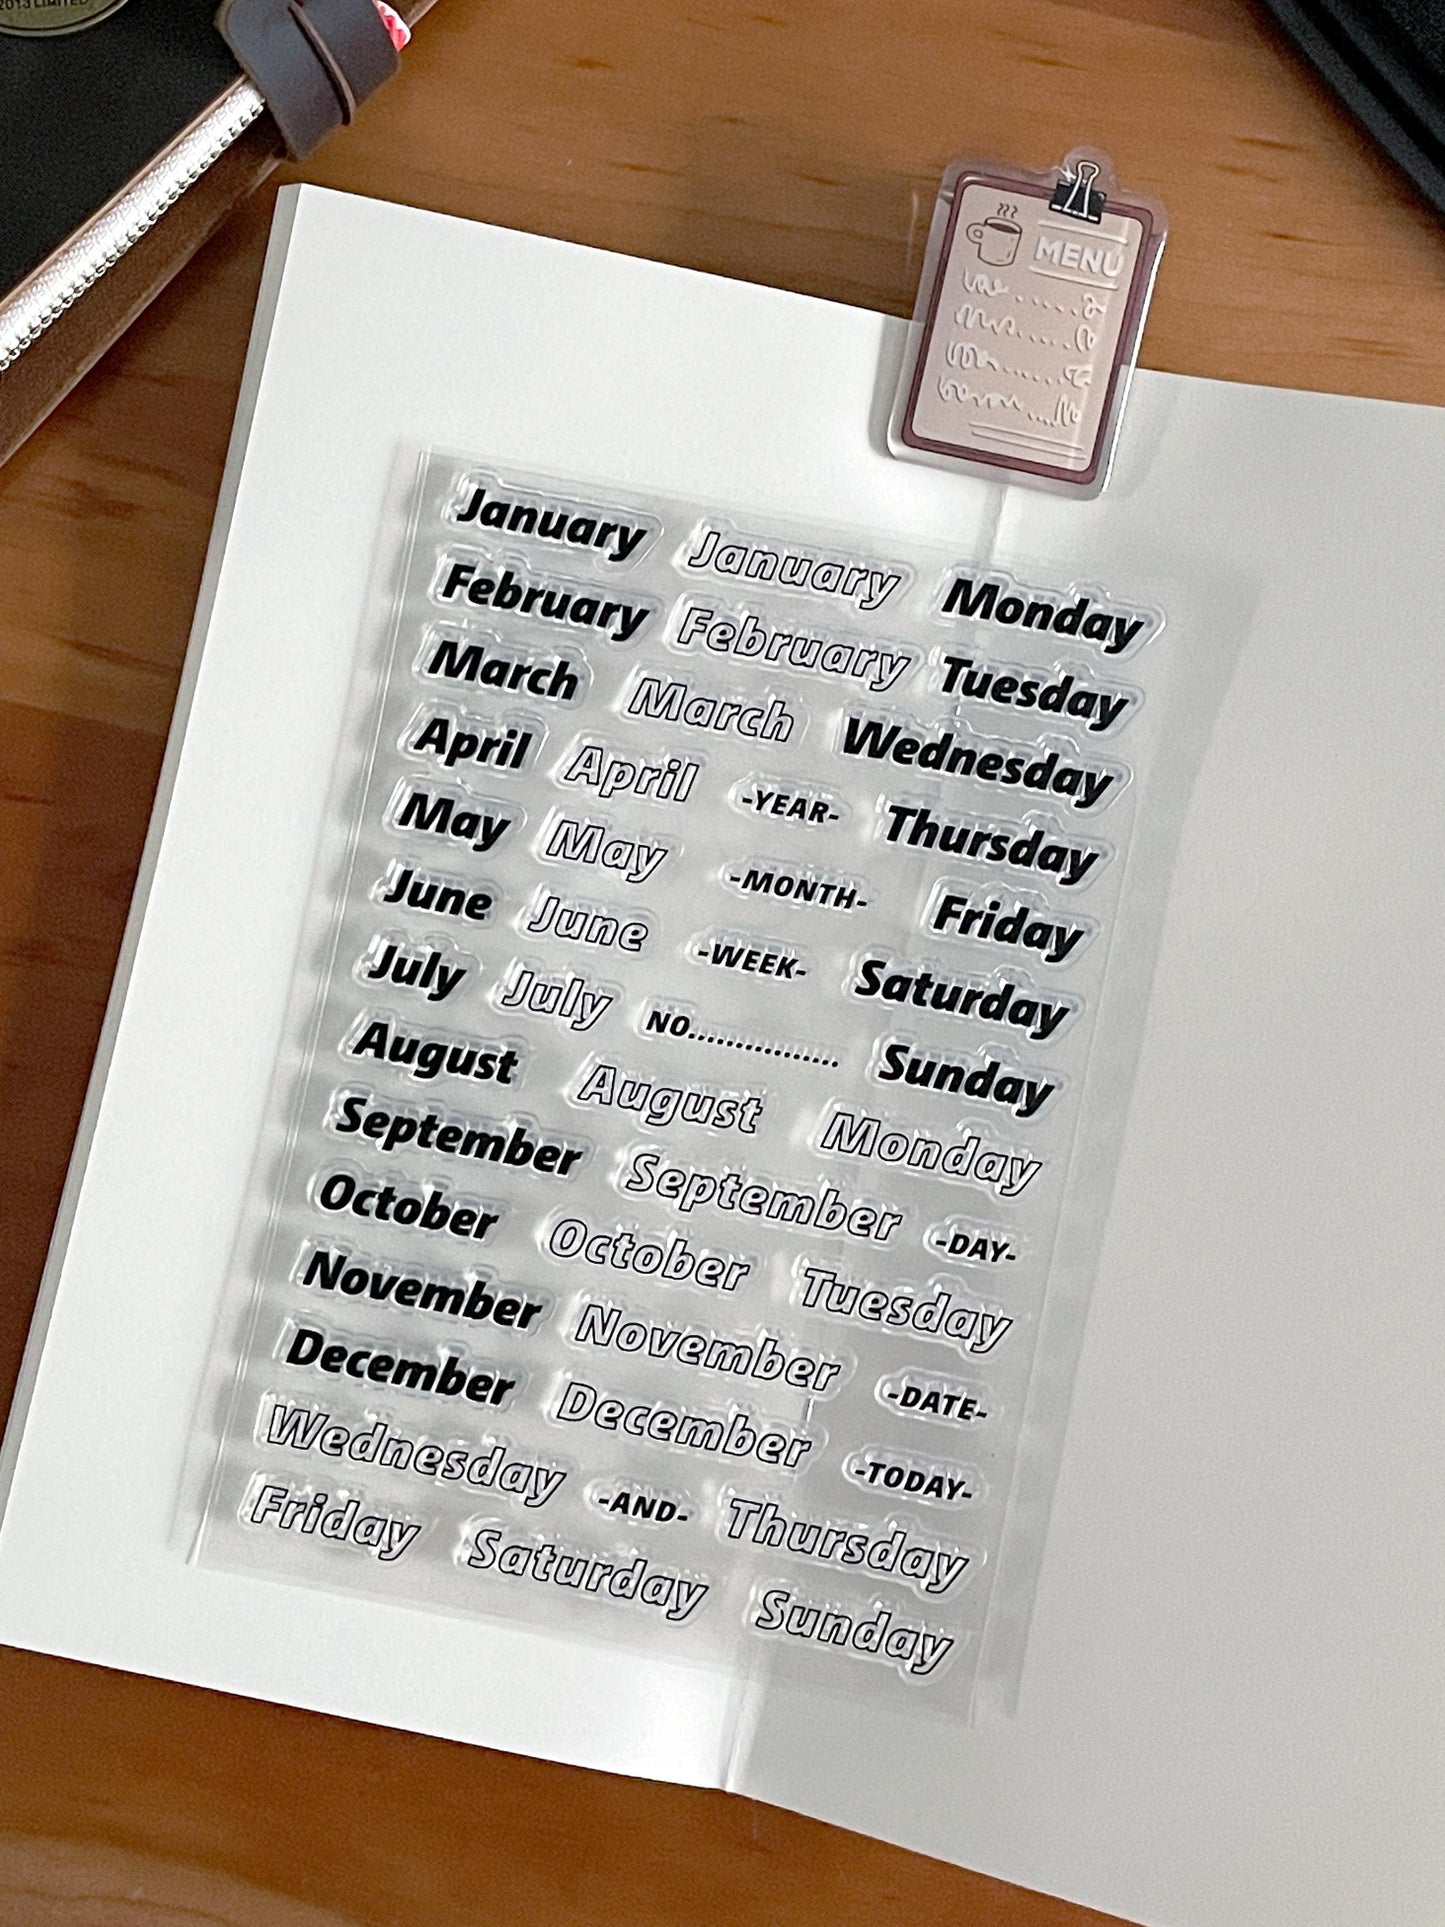 2013 LIMITED
MENU
January January Monday
February February Tuesday
March March Wednesday
April April -YEAR- Thursday
May May -MONTH- Friday
June June -WEEK- Saturday
July July NO................ Sunday
August August Monday
September September -DAY-
October October Tuesday
November November -DATE-
December December -TODAY-
Wednesday -AND- Thursday
Friday Saturday Sunday